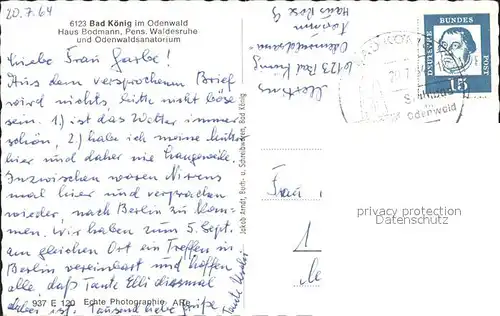 20.7.64
6123 Bad König im Odenwald
Haus Bodmann, Pens. Waldesruhe
und Odenwaldsanatorium
Liebe Frau Garbe!
Aus dem versprochenen Brief
wird nichts, bitte nicht böse
sein. 1.) ist das Wetter immer
schön, 2.) habe ich meine Mutter
hier und daher nie Langeweile.
Inzwischen waren
mal hier und versprachen
wieder, nach Berlin zu kom-
men. Wir haben zum 5. Sept.
am gleichen Ort ein Treffen in
Berlin vereinbart und hoffen
alle, daß Tante Elli diesmal
dabei ist. Tausend liebe Grüße
Tante
937 E 120 Echte Photographie AFte
Jakob Arndt, Buch- u. Schreibwaren, Bad König
6123 Bad König
Haus
DEUTSCHE BUNDES POST
15
Odenwald
Frau
1
privacy protection
Datenschutz